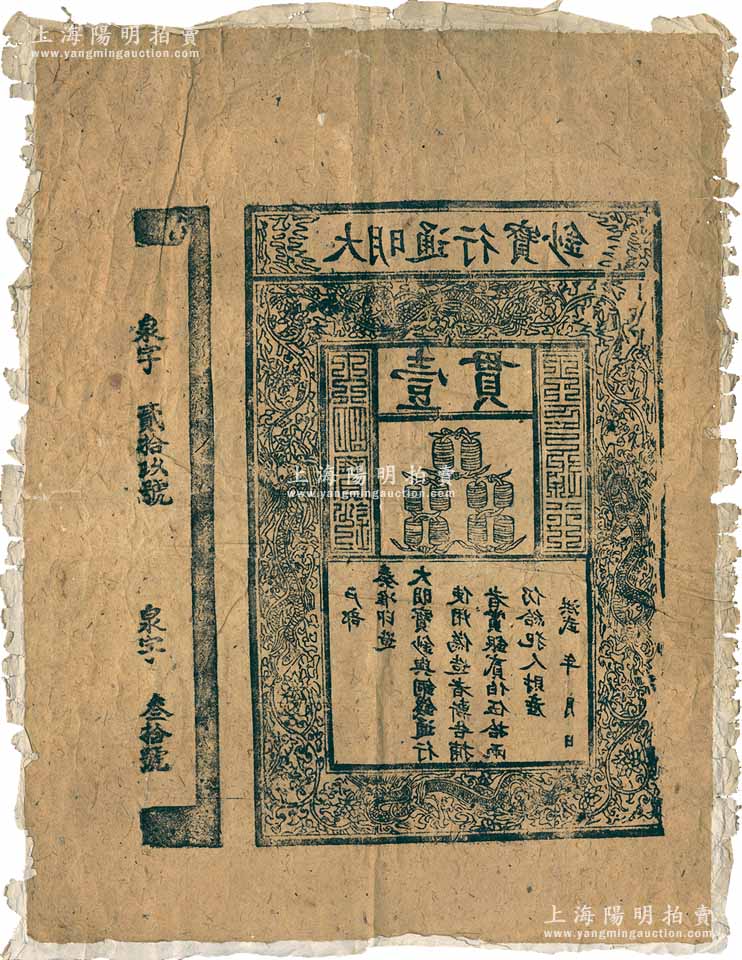 上海陽明拍賣
www.yangmingauction.com
大明通行寶鈔
壹貫
户部
奏准印造
大明寶鈔與銅錢通行
使用偽造者斬告捕
者賞銀貳佰伍拾兩
仍給犯人財產
洪武 年 月 日
泉字 貳拾玖號
泉字 叁拾號
上海陽明拍賣
www.yangmingauction.com
上海陽明拍賣
www.yangmingauction.com